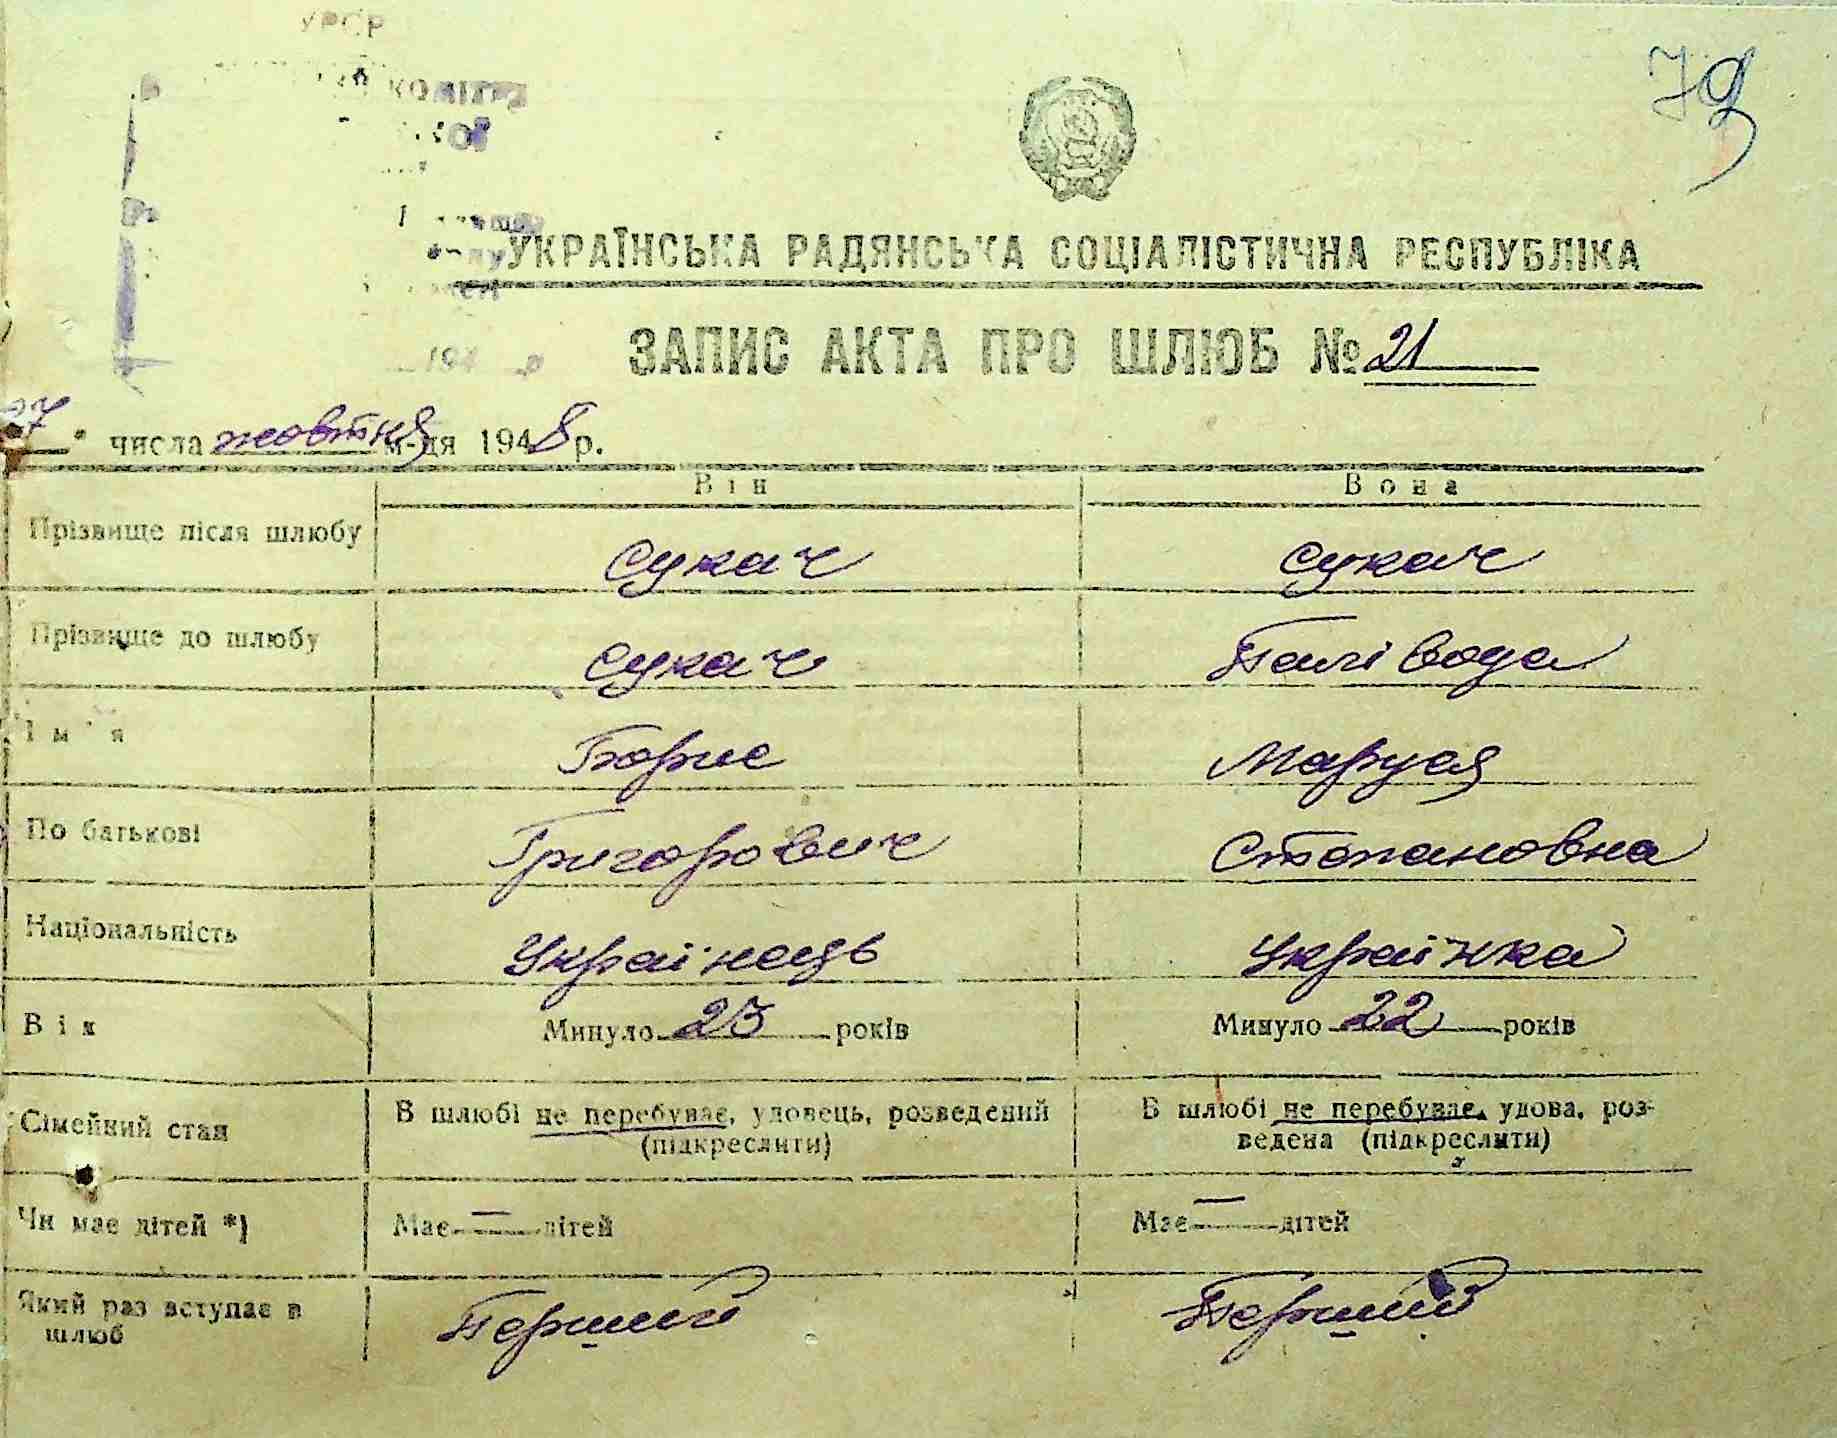 УРСР
КОМІТЕТ
79
УКРАЇНСЬКА РАДЯНСЬКА СОЦІАЛІСТИЧНА РЕСПУБЛІКА
ЗАПИС АКТА ПРО ШЛЮБ № 21
194 р
27 " числа жовтня м-ця 1948 р.
Він Вона
Прізвище після шлюбу Сукач Сукач
Прізвище до шлюбу Сукач Палівода
Ім'я Борис Маруся
По батькові Григорович Степановна
Національність Українець Українка
Вік Минуло 23 років Минуло 22 років
Сімейний стан В шлюбі не перебуває, удовець, розведений (підкреслити) В шлюбі не перебуває, удова, роз-
ведена (підкреслити)
Чи має дітей *) Має — дітей Має — дітей
Який раз вступає в Перший Перший
шлюб